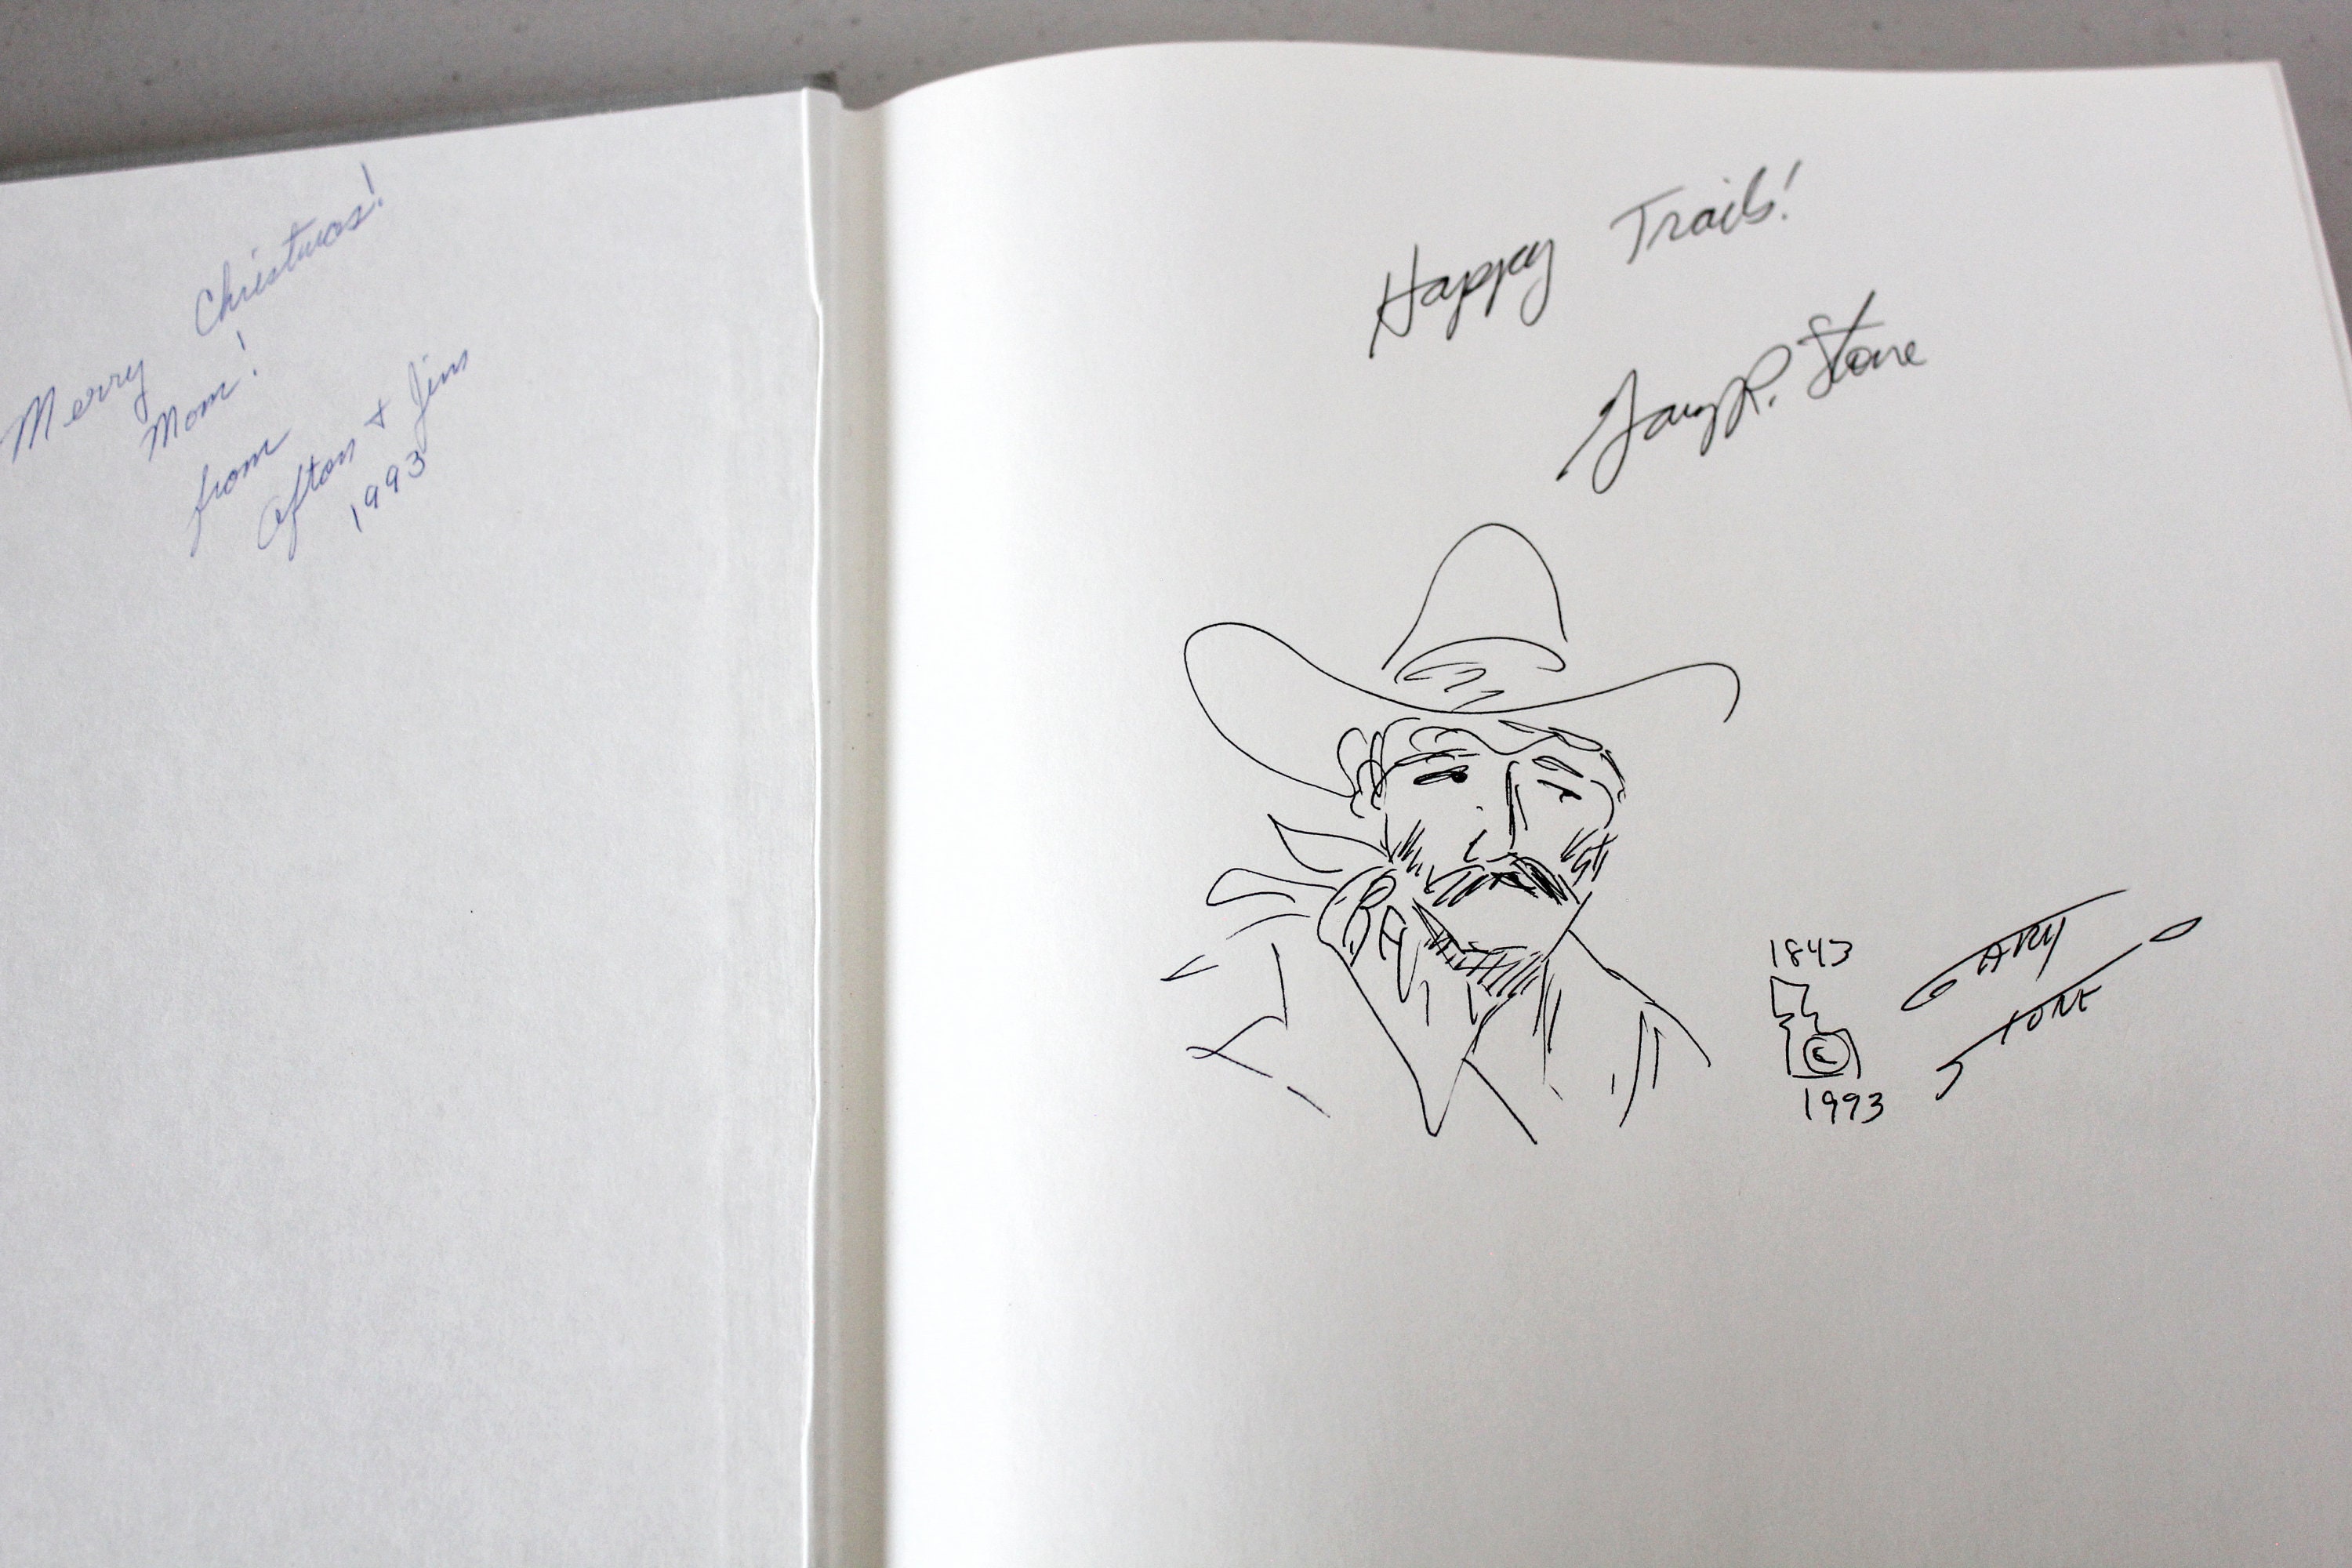 Merry Christmas!
Mom!
from
Afton + Jim
1993
Happy Trails!
Gary R. Stone
1843
1993
GARY
STONE